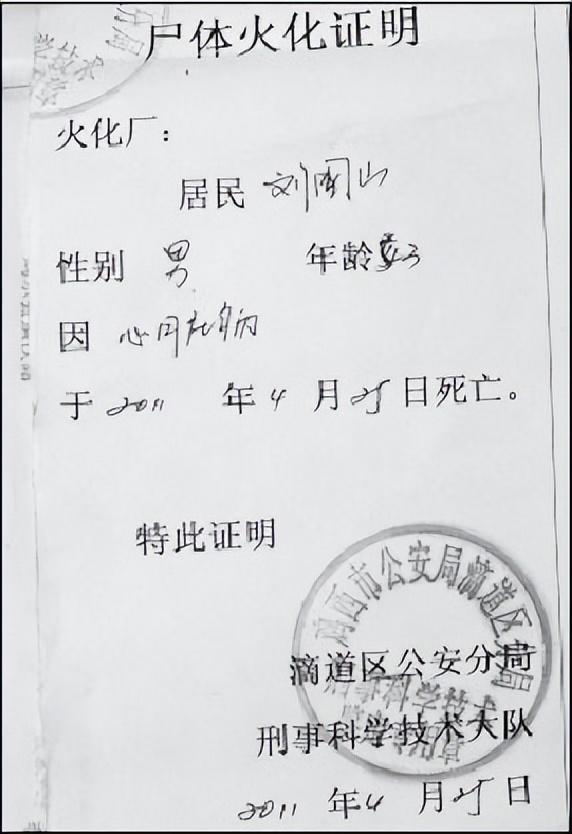 尸体火化证明
火化厂：
居民 刘国山
性别 男 年龄
因 心
于 2011 年 4 月 25 日死亡。
特此证明
鸡西市公安局滴道区分局
滴道区公安分局
刑事科学技术
刑事科学技术大队
2011 年 4 月 25 日